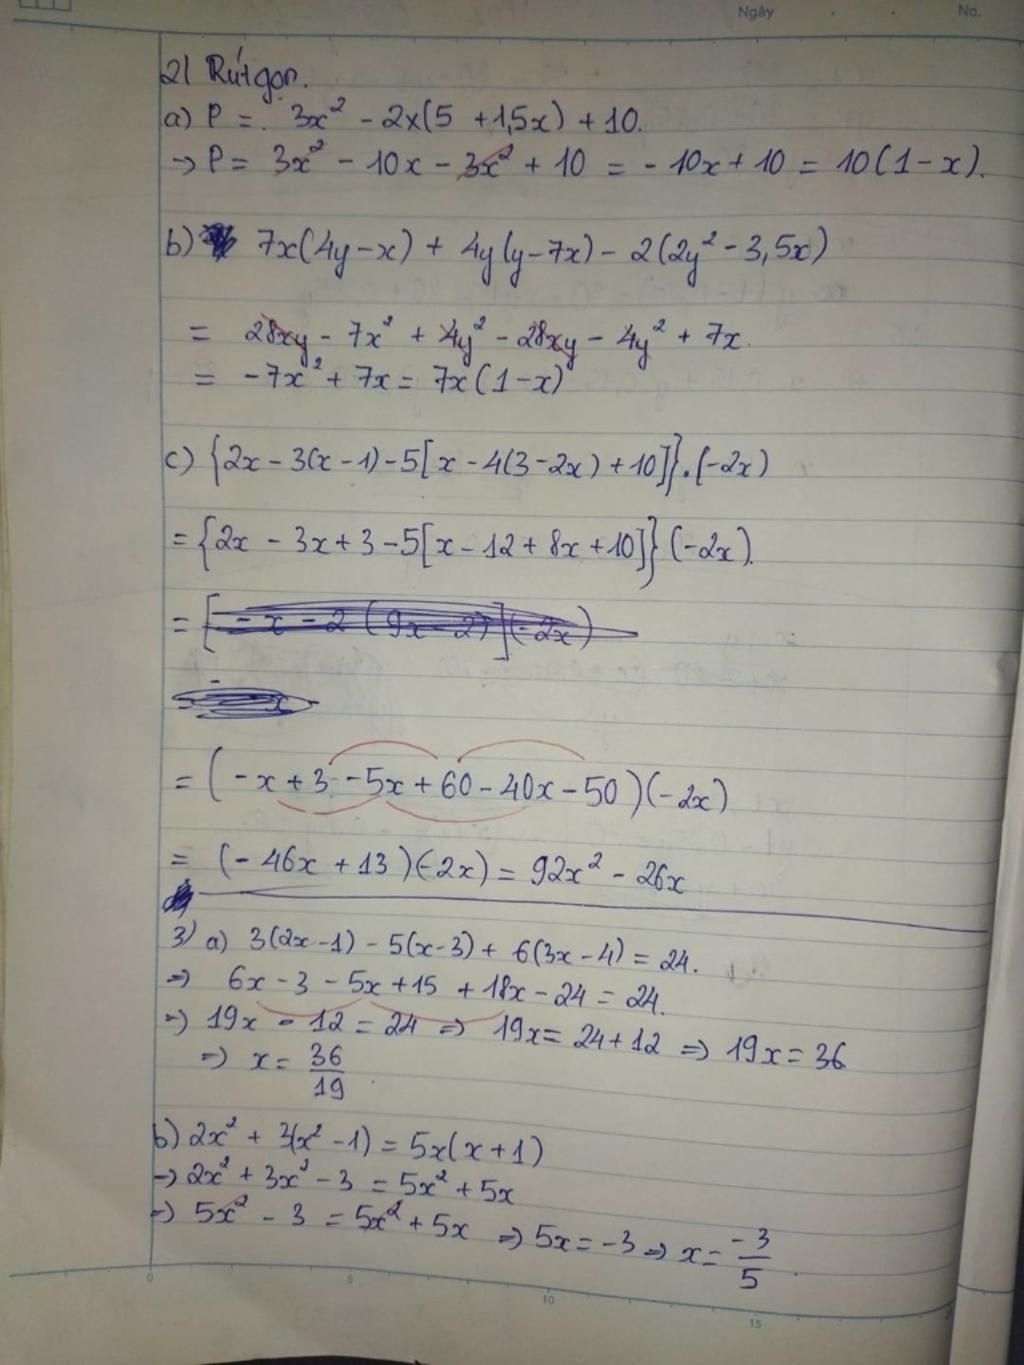 Ngày
No.
2) Rút gọn.
a) P = 3x² - 2x(5 + 1,5x) + 10.
→ P = 3x² - 10x - 3x² + 10 = - 10x + 10 = 10(1 - x).
b) 7x(4y - x) + 4y(y - 7x) - 2(2y² - 3,5x)
= 28xy - 7x² + 4y² - 28xy - 4y² + 7x.
= -7x² + 7x = 7x(1 - x)
c) {2x - 3(x - 1) - 5[x - 4(3 - 2x) + 10]}.(-2x)
= {2x - 3x + 3 - 5[x - 12 + 8x + 10]}(-2x).
= [- x - 2 (9x - 2)](-2x)
= (- x + 3 - 5x + 60 - 40x - 50)(-2x)
= (- 46x + 13)(-2x) = 92x² - 26x
3) a) 3(2x - 1) - 5(x - 3) + 6(3x - 4) = 24.
⇒ 6x - 3 - 5x + 15 + 18x - 24 = 24.
⇒ 19x - 12 = 24 ⇒ 19x = 24 + 12 ⇒ 19x = 36
⇒ x = 36/19
b) 2x² + 3(x² - 1) = 5x(x + 1)
⇒ 2x² + 3x² - 3 = 5x² + 5x
⇒ 5x² - 3 = 5x² + 5x ⇒ 5x = -3 ⇒ x = -3/5
0 5 10 15